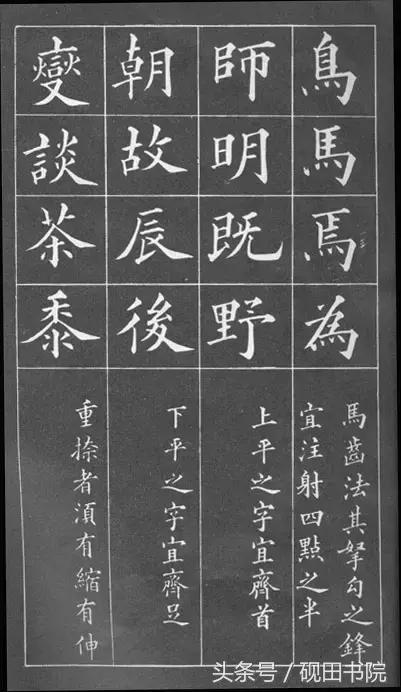 鳥馬焉為
馬齒法其拏勾之鋒
宜注射四點之半
師明既野
上平之字宜齊首
朝故辰後
下平之字宜齊足
燮談茶黍
重捺者湏有縮有伸
头条号/砚田书院